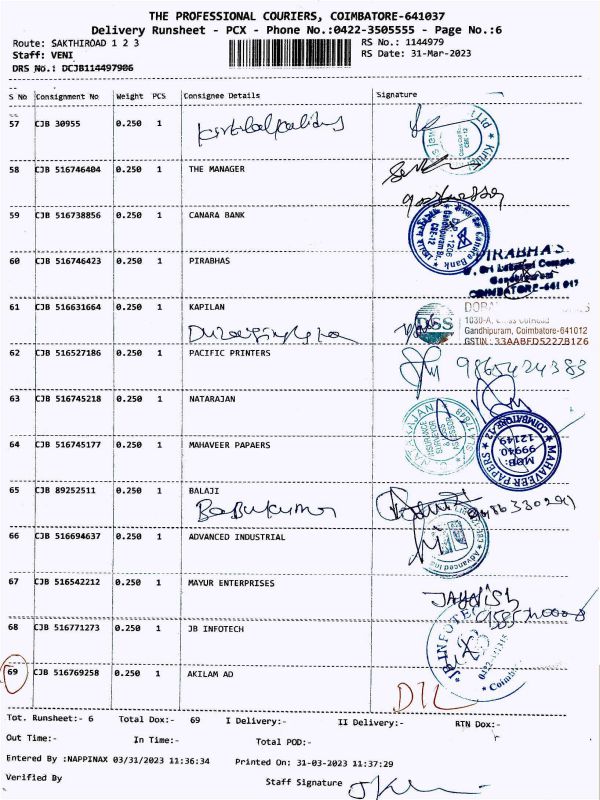 THE PROFESSIONAL COURIERS, COIMBATORE-641037
Delivery Runsheet - PCX - Phone No.:0422-3505555 - Page No.:6
Route: SAKTHIROAD 1 2 3 RS No.: 1144979
Staff: VENI RS Date: 31-Mar-2023
DRS No.: DCJB114497906
S No Consignment No Weight PCS Consignee Details Signature
57 CJB 30955 0.250 1
58 CJB 516746404 0.250 1 THE MANAGER
59 CJB 516738856 0.250 1 CANARA BANK
Canara Bank
Gandhipuram Br.
CBE-12
60 CJB 516746423 0.250 1 PIRABHAS
PIRABHAS
COIMBATORE-641 017
61 CJB 516631664 0.250 1 KAPILAN
DSS
Gandhipuram, Coimbatore-641012
GSTIN :33AABFD5227B1Z6
62 CJB 516527186 0.250 1 PACIFIC PRINTERS
9865424383
63 CJB 516745218 0.250 1 NATARAJAN
64 CJB 516745177 0.250 1 MAHAVEER PAPAERS
MAHAVEER PAPERS
COIMBATORE-12
MOB:
99940
12149
65 CJB 89252511 0.250 1 BALAJI
Babukumar
66 CJB 516694637 0.250 1 ADVANCED INDUSTRIAL
67 CJB 516542212 0.250 1 MAYUR ENTERPRISES
68 CJB 516771273 0.250 1 JB INFOTECH
JB INFOTE
69 CJB 516769258 0.250 1 AKILAM AD
DTL
Tot. Runsheet:- 6 Total Dox:- 69 I Delivery:- II Delivery:- RTN Dox:-
Out Time:- In Time:- Total POD:-
Entered By :NAPPINAX 03/31/2023 11:36:34 Printed On: 31-03-2023 11:37:29
Verified By Staff Signature